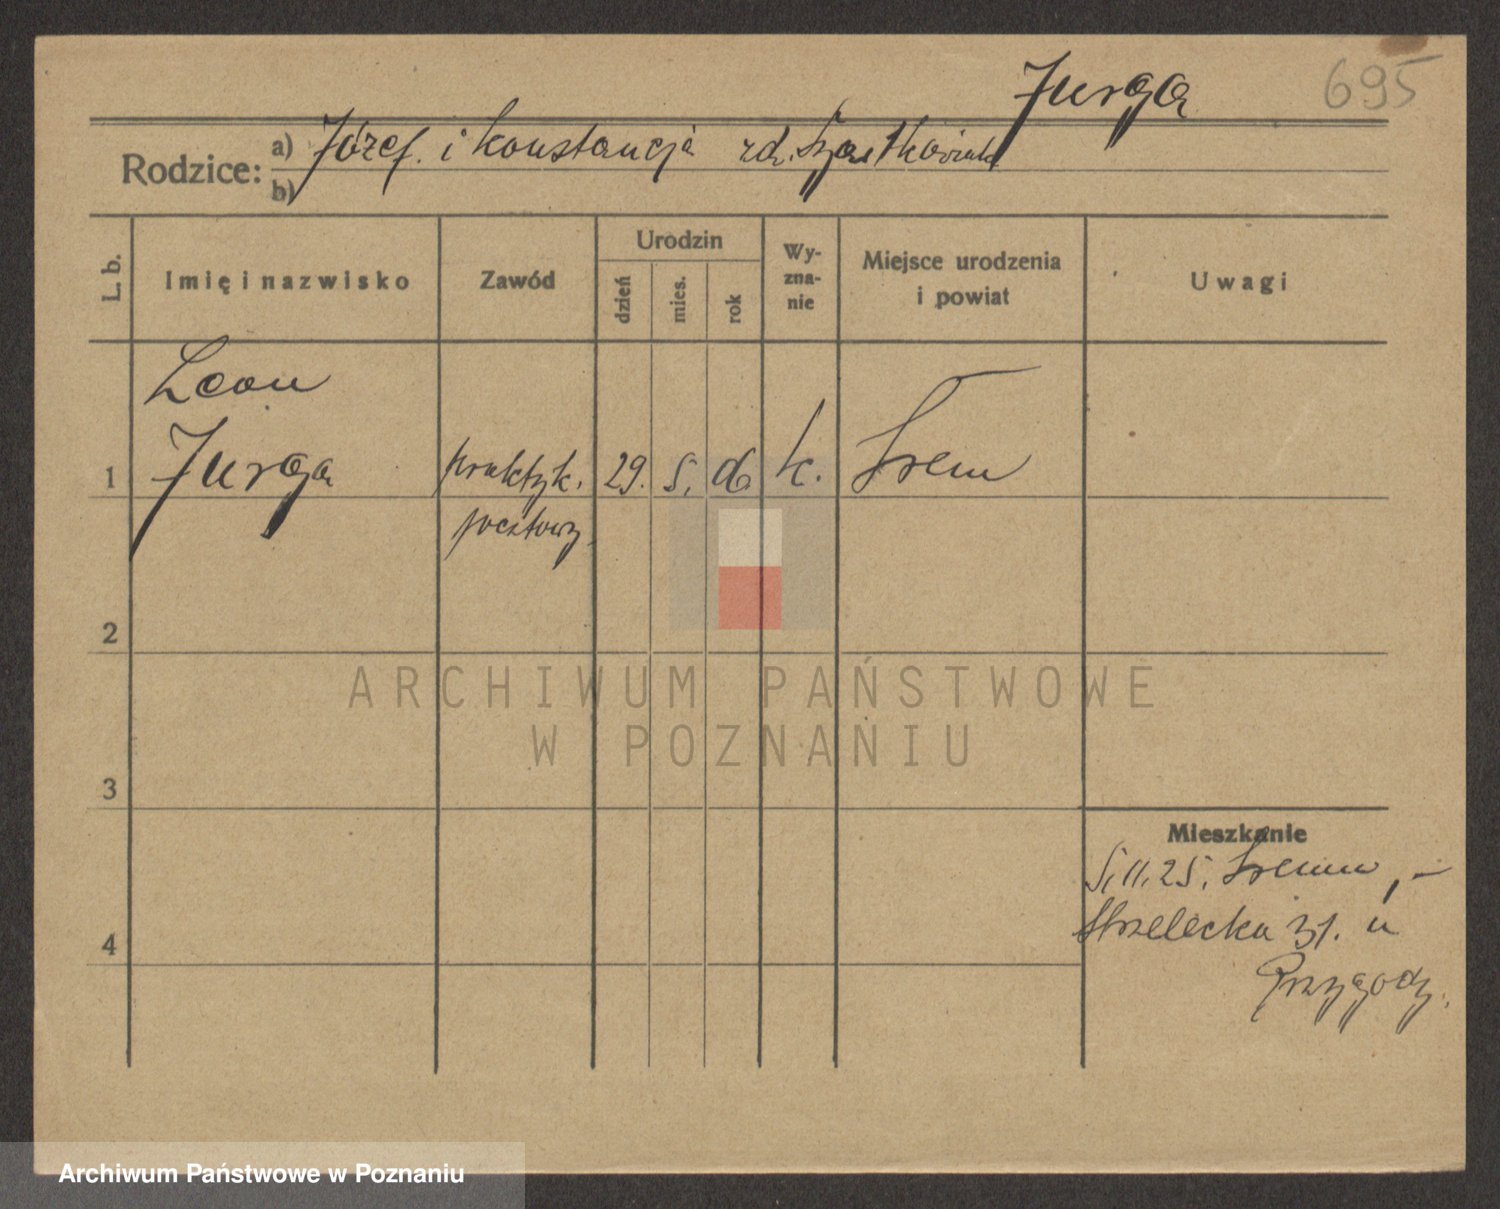 Jurga
695
Rodzice: a) Józef i Konstancja zd.
b)
L. b.
Imię i nazwisko
Zawód
Urodzin
dzień
mies.
rok
Wy-
zna-
nie
Miejsce urodzenia
i powiat
Uwagi
Leon
1 Jurga praktyk. 29. 5. 06 k. Śrem
pocztowy
2
ARCHIWUM PAŃSTWOWE
W POZNANIU
3
Mieszkanie
5.11.25. Śrem, -
Strzelecka 31. u
4
Przygody.
Archiwum Państwowe w Poznaniu